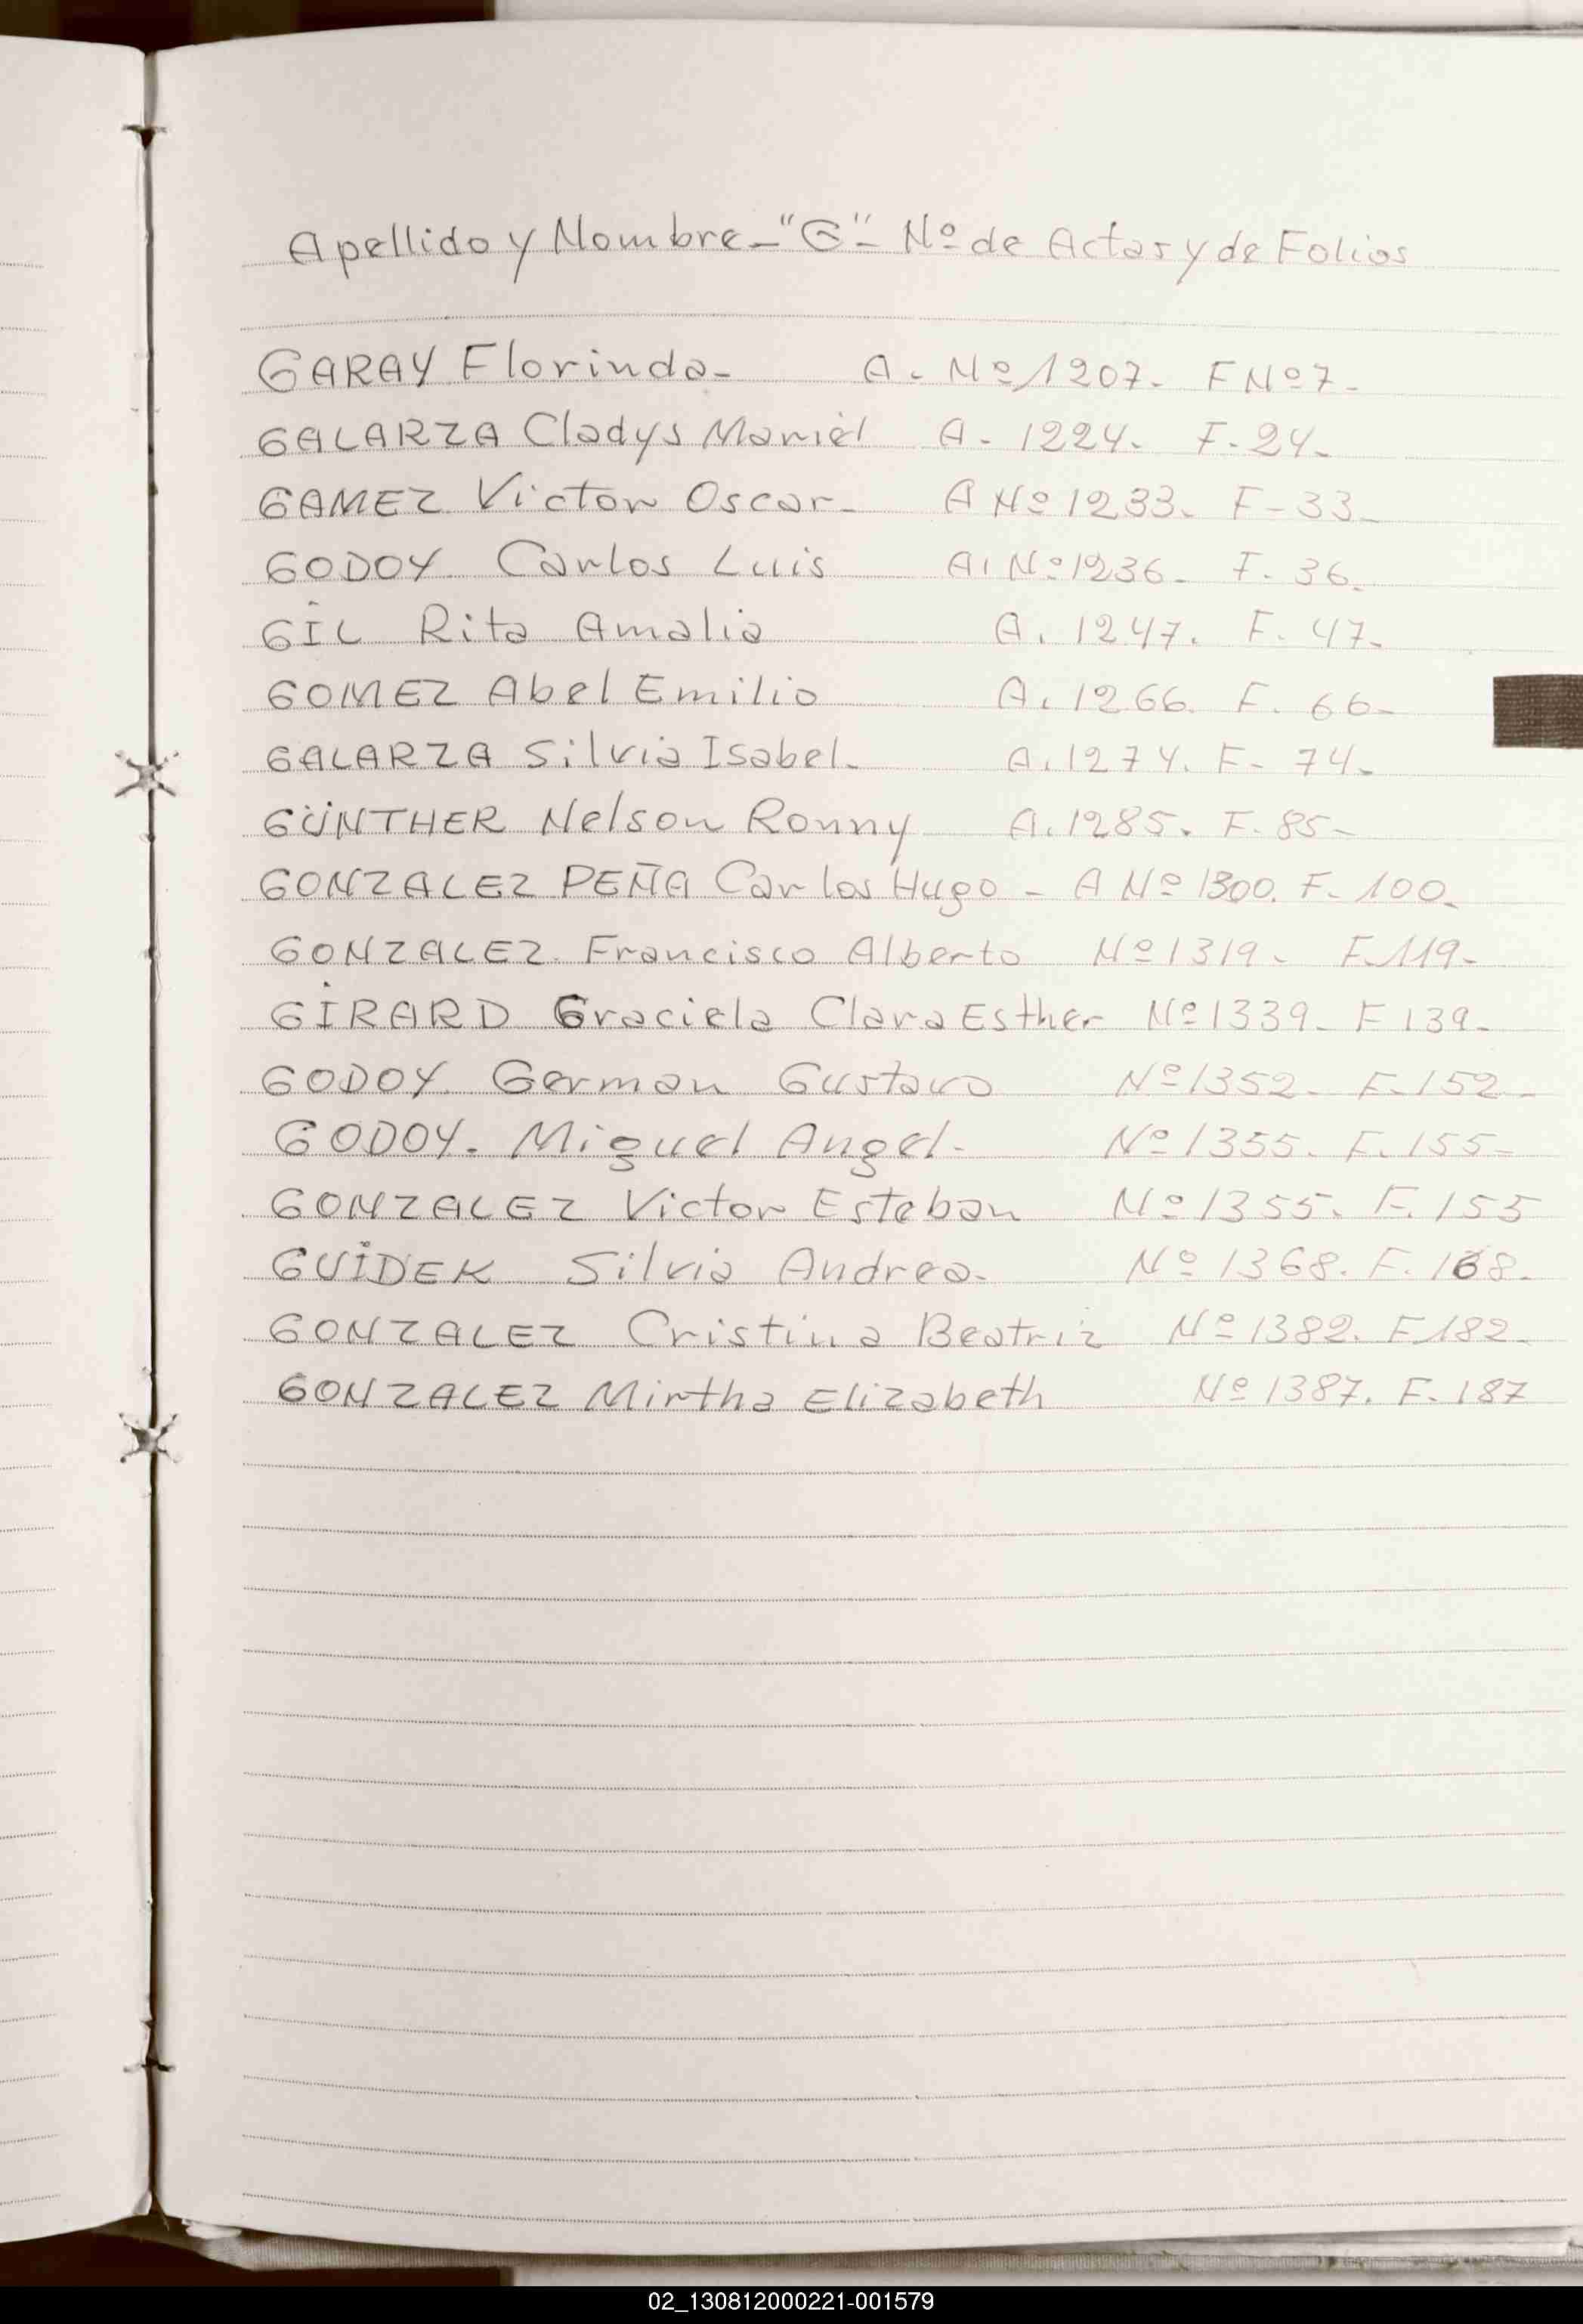 Apellido y Nombre - "G" - Nº de Actas y de Folios
GARAY Florinda - A. Nº 1207. F Nº 7-
GALARZA Cladys Mariel A - 1224. F - 24-
GAMEZ Victor Oscar - A Nº 1233. F - 33-
GODOY Carlos Luis A. Nº 1236. F. 36.
GIL Rita Amalia A. 1247. F. 47-
GOMEZ Abel Emilio A. 1266. F. 66-
GALARZA Silvia Isabel. A. 1274. F - 74-
GÜNTHER Nelson Ronny A. 1285. F. 85-
GONZALEZ PEÑA Carlos Hugo - A Nº 1300. F. 100.
GONZALEZ Francisco Alberto Nº 1319. F. 119-
GIRARD Graciela Clara Esther Nº 1339 - F 139-
GODOY German Gustavo Nº 1352. F. 152-
GODOY. Miguel Angel. Nº 1355. F. 155-
GONZALEZ Victor Esteban Nº 1355. F. 155
GUIDEK Silvia Andrea. Nº 1368. F. 168-
GONZALEZ Cristina Beatriz Nº 1382. F. 182-
GONZALEZ Mirtha Elizabeth Nº 1387. F. 187
02_130812000221-001579